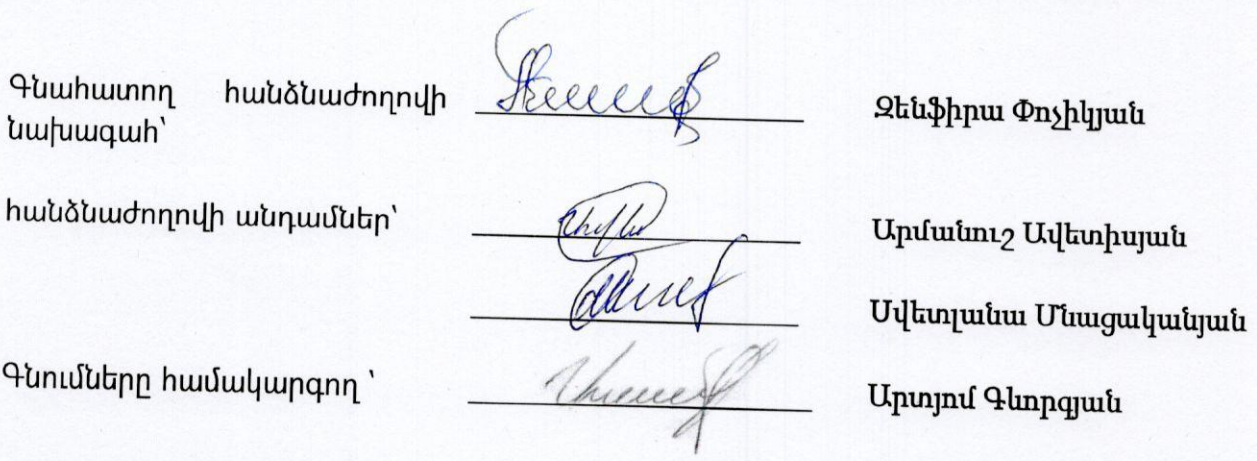 Գնահատող հանձնաժողովի Զենֆիրա Փոչիկյան
նախագահ՝
հանձնաժողովի անդամներ՝ Արմանուշ Ավետիսյան
Սվետլանա Մնացականյան
Գնումները համակարգող ՝ Արտյոմ Գևորգյան